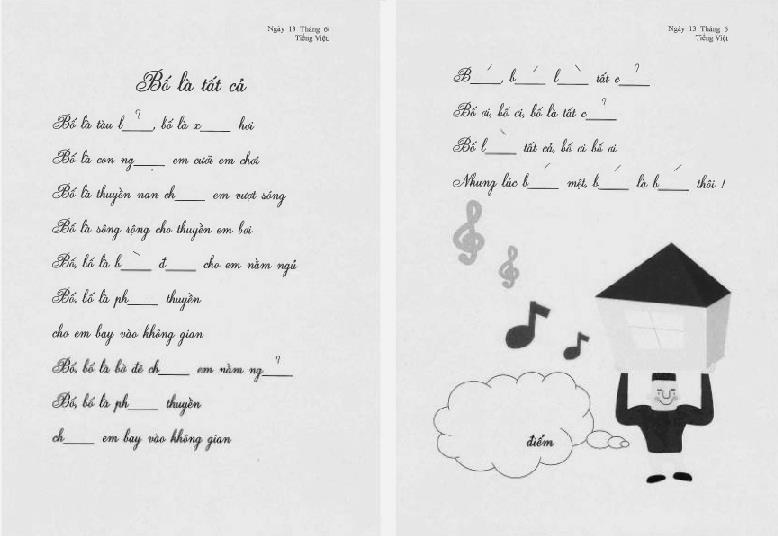 Ngày 13 Tháng 6
Tiếng Việt
Bố là tất cả
Bố là tàu l____, bố là x____ hơi
Bố là con ng____ em cưỡi em chơi
Bố là thuyền nan ch____ em vượt sóng
Bố là sông rộng cho thuyền em bơi
Bố, bố là b____ đ____ cho em nằm ngủ
Bố, bố là ph____ thuyền
cho em bay vào không gian
Bố, bố là bờ đê ch____ em nằm ng____
Bố, bố là ph____ thuyền
ch____ em bay vào không gian
Ngày 13 Tháng 5
Tiếng Việt
B____, b____ l____ tất c____
Bố ơi, bố ơi, bố là tất c____
Bố l____ tất cả, bố ơi bố ơi
Nhưng lúc b____ mệt, b____ là b____ thôi !
điểm